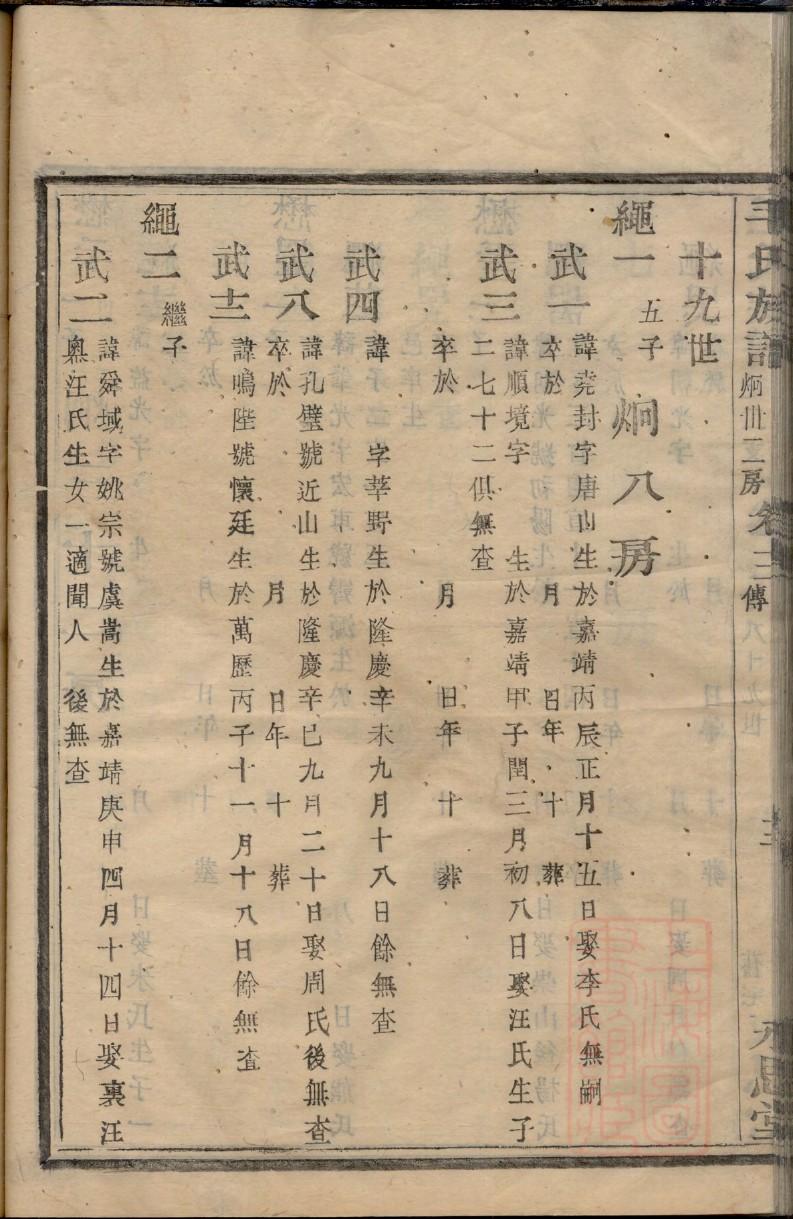 王氏族譜 炯 房 卷三 傳 永思堂
十九世
繩一 五子 炯八房
武一 諱堯封字唐山生於嘉靖丙辰正月十五日娶李氏無嗣
卒於 月 日年 十 葬
武三 諱順境字 生於嘉靖甲子閏三月初八日娶汪氏生子
二七十二俱無查
卒於 月 日年 十 葬
武四 諱 字莘野生於隆慶辛未九月十八日餘無查
武八 諱孔璧號近山生於隆慶辛巳九月二十日娶周氏後無查
卒於 月 日年 十 葬
武十三 諱鳴陞號懷廷生於萬歷丙子十一月十八日餘無查
繩二 繼子
武二 諱舜域字姚宗號虞嵩生於嘉靖庚申四月十四日娶裏汪
奧汪氏生女一適聞人 後無查